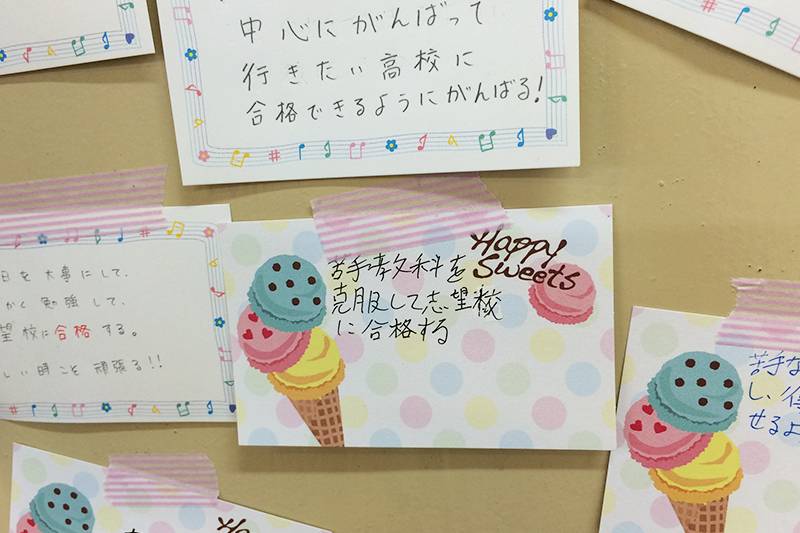 中心にがんばって
行きたい高校に
合格できるようにがんばる!
日を大事にして、
かく勉強して、
望校に合格する。
しい時こそ頑張る!!
Happy
Sweets
苦手教科を
克服して志望校
に合格する
苦手な
し、
せるよ